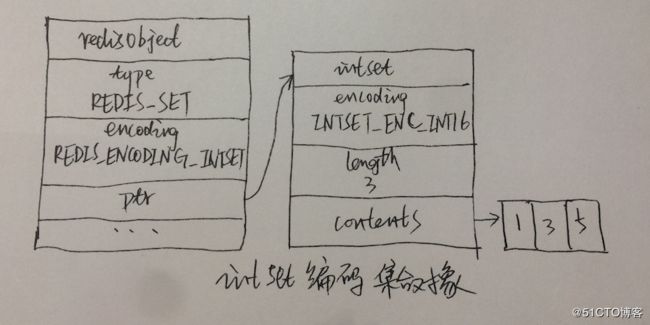 redisobject
type
REDIS_SET
encoding
REDIS_ENCODING_INTSET
ptr
...
intset
encoding
INTSET_ENC_INT16
length
3
contents
1 3 5
intset 编码 集合对象
@51CTO博客